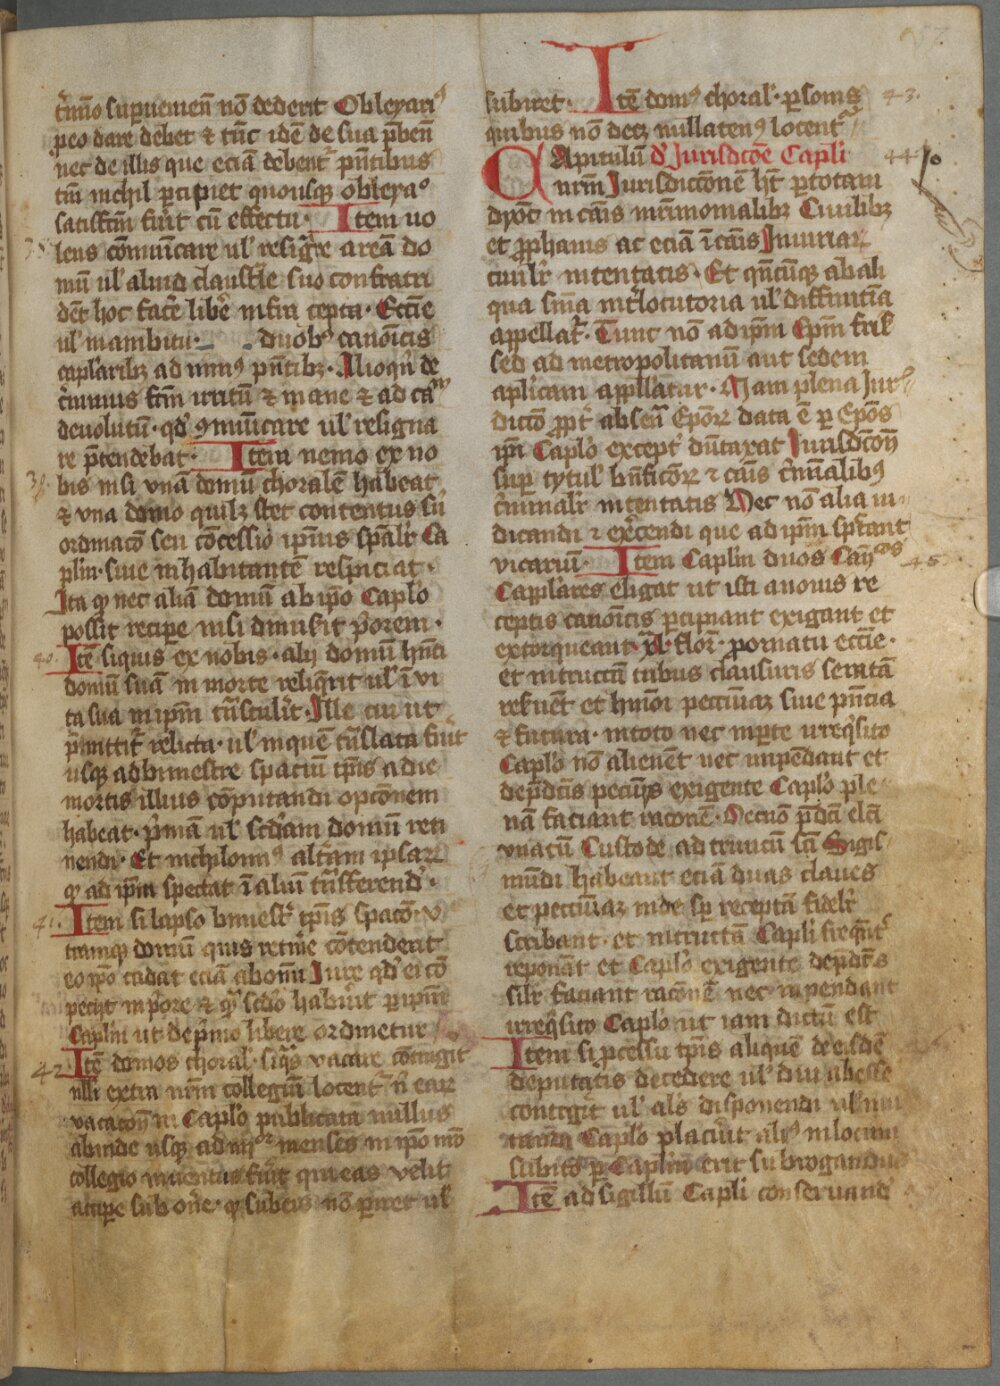 t'mio superueniēn nō dederit Obleyari⁹
p̄eo dare debet & tūc idē de sua p̄bēn
nec de illis que eciā debent' pn̄tibus
tm̄ nichil p̄cipiet quousqz obleya⁹
satisfm̄ fuit cū effectu · Item uo
lens cōmūicare ul' resigr̄e areā do
mū ul' aliud claustle suo confratri
det hoc facē libē infra septa · Eccīe
ul' in ambitu · duob⁹ canōicis
caplaribz ad min⁹ pn̄tibz · Alioqn̄ de
t'minus scm̄ irritū & inane & ad cam̄
deuolutū · qd' 9mūicare ul' resigna
re p̄tendebat · Item nemo ex no
bis nisi vnā domū choralē habeat
& vna domo quilz stet contentus sū
ordinacō seu cōcessio ipīus spālr Ca
plm̄ · siue inhabitantē respiciat ·
Ita q nec aliā domū ab ip̄o Caplo
possit recipe nisi dimisit p̄orem ·
40. Itē siquis ex nobis · alij domū hn̄ti
domū suā in morte reliq̄rit ul' ī vi
ta sua in ipm̄ tn̄stulit · Ille cui ut
p̄mittit' relicta · ul' in quē tn̄slata fuit
usqz ad bimestre spaciū tp̄is a die
mortis illius cōputandi opcōnem
habeat · p̄mā ul' scd̄am domū reti
nendi · Et nichilomin⁹ altām ipsar
q ad ipm̄ spectat ī aliū tn̄sferend' ·
41. Item si lapso bimestr' tp̄is spacio v
tramqz domū quis retinē cōtenderit
eo ip̄o cadat eciā ab omī Iure qd' ei cō
petiit in p̄ore & q scd̄o habūt p ipm̄
Caplm̄ ut de p̄mo libere ordinetur
42. Itē domos choral' siqs vacare cōtingit
nlli extra nrm̄ collegiū locent' n' ear
vacacōn in Caplo publicata nullus
abinde usqz ad iij menses in ip̄o nr̄o
collegio inuentus fuīt qui eas velit
accipe sub onē · q subeūs nō p̄nret ul'
subiret · Itē dom⁹ choral' · psonis 43.
quibus nō decz nullaten⁹ locent'
CApitulū d' Jurisdicōe Capli 44
nrm̄ Jurisdictionē ht p totam
dyoc̄ in cāis mr̄imonialibz Ciuilibz
et p̄phanis ac eciā ī cāis Iniuriar
ciuilr intentatis · Et qn̄cūqz ab ali
qua sn̄ia int'locutoria ul' diffinitīa
appellat' · Tunc nō ad ipm̄ Ep̄m fiat
sed ad metropolitanū aut sedem
aplicam appllatur · Nam plena Jur
dictō ppt' absen̄ Ep̄or data ē p Ep̄os
ipī Caplo except' dūtaxat Iurisdicōn
sup tytul' bn̄ficor & cāis c'mīalib⁹
c'minalr intentatis Nec nō alia iu
dicandi & exercendi que ad ipm̄ spctant
vicariū · Item Caplm̄ duos Canōcos 45
Caplares eligat ut isti a nouis re
ceptis canōicis pcipiant exigant et
extorqueant xl · flor · p ornatu eccīe ·
et introitū tribus clausuris seratā
refuēt et hmōi pecuniaz siue pn̄cia
& futura · in toto nec in pte irreqsito
Caplo nō alienēt nec impendant et
de p̄dcis pecuijs exigente Caplo ple
nā faciant racōnē · Secūo p̄dcī elcī
vnacū Custode ad truncū scī Sigis
mūdi habeant eciā duas claues
et pecuniaz inde sp receptā fidelr
scribant · et introitū Capli freqn̄t'
reponāt et Caplo exigente de p̄dcis
silr faciant racōnē nec inpendant
irreqsito Caplo ut iam dictū est
Item si pcessu tp̄is aliquē de eisdē
deputatis decedere ul' diu abesse
contigit ul' als disponendi
Caplo placūit ali⁹ in locum
subito p Caplm̄ erit subrogandus
Itē ad sigillū Capli conseruand'